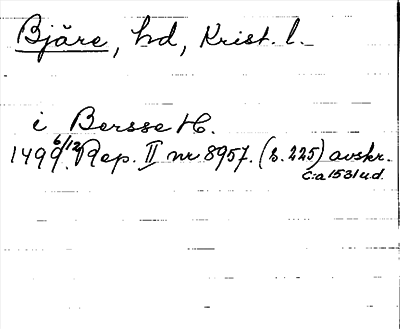 Bjäre, hd, Krist. l.
i Bersse H.
1499 6/12. Rep. II nr 8957. (s. 225) avskr.
c:a 1531 u.d.